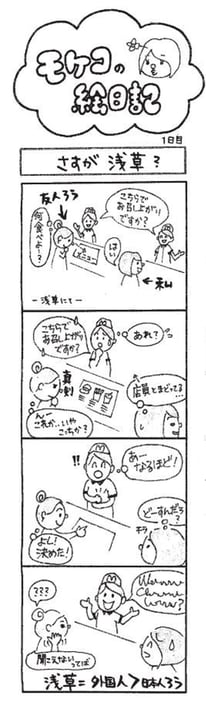 モケコの
絵日記
1日目
さすが 浅草？
友人ろう
こちらで
お召し上がり
ですか？
何食べよー？
メニュー
はい
←私
ー浅草にてー
こちらで
お召し上がり
ですか？
あれ？
真剣
店員とまどってる…
んー
これか…いや
こっちか？
!!
あー
なるほど！
どーすんだろ
？
チラ
よし！
決めた！
？？？
聞こえない
ってば
浅草＝外国人＞日本人ろう